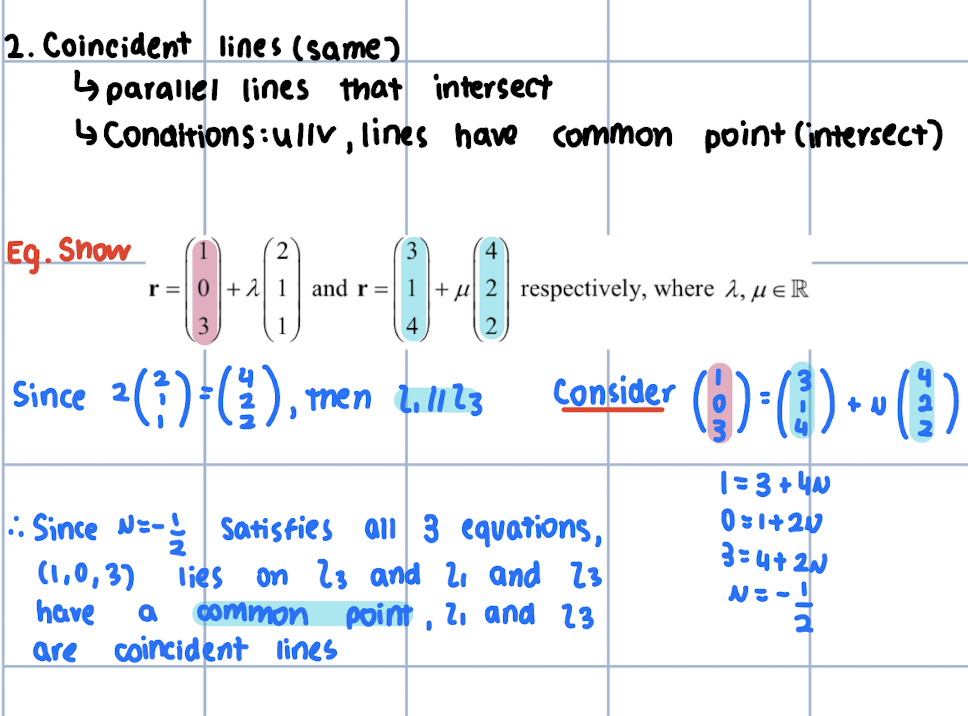 2. Coincident lines (same)
↳ parallel lines that intersect
↳ Conditions: u//v, lines have common point (intersect)
Eg. Show
r = (1 0 3) + λ (2 1 1) and r = (3 1 4) + μ (4 2 2) respectively, where λ, μ ∈ ℝ
Since 2 (2 1 1) = (4 2 2), then l₁ // l₃
Consider (1 0 3) = (3 1 4) + μ (4 2 2)
1 = 3 + 4μ
0 = 1 + 2μ
3 = 4 + 2μ
μ = -1/2
∴ Since μ = -1/2 satisfies all 3 equations,
(1, 0, 3) lies on l₃ and l₁ and l₃
have a common point, l₁ and l₃
are coincident lines